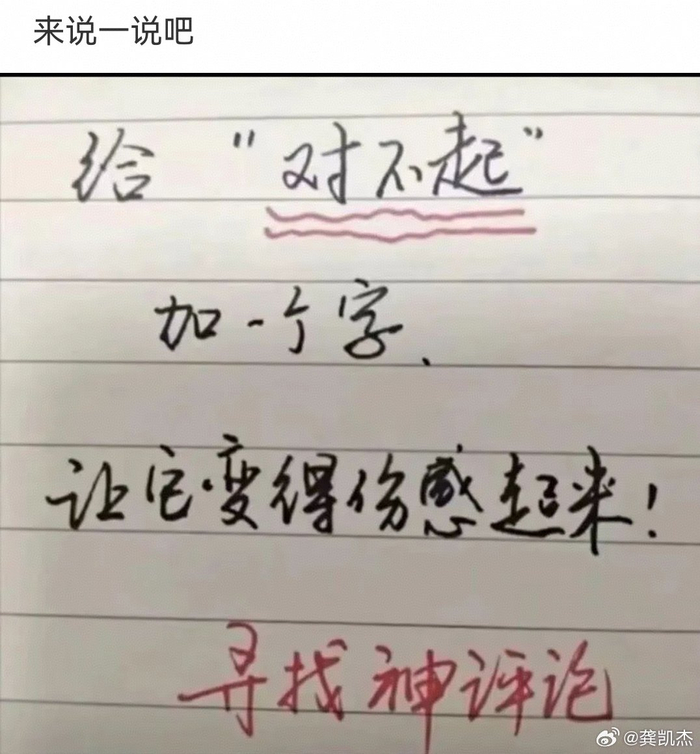 来说一说吧
给“对不起”
加一个字、
让它变得伤感起来！
寻找神评论
@龚凯杰